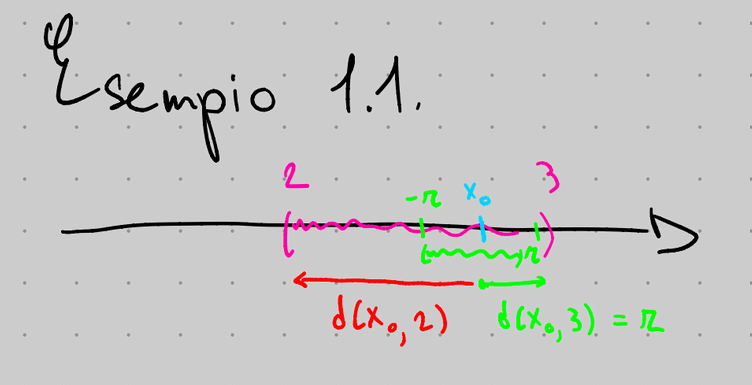 Esempio 1.1.
2 3
-r x₀
( r )
d(x₀, 2) d(x₀, 3) = r